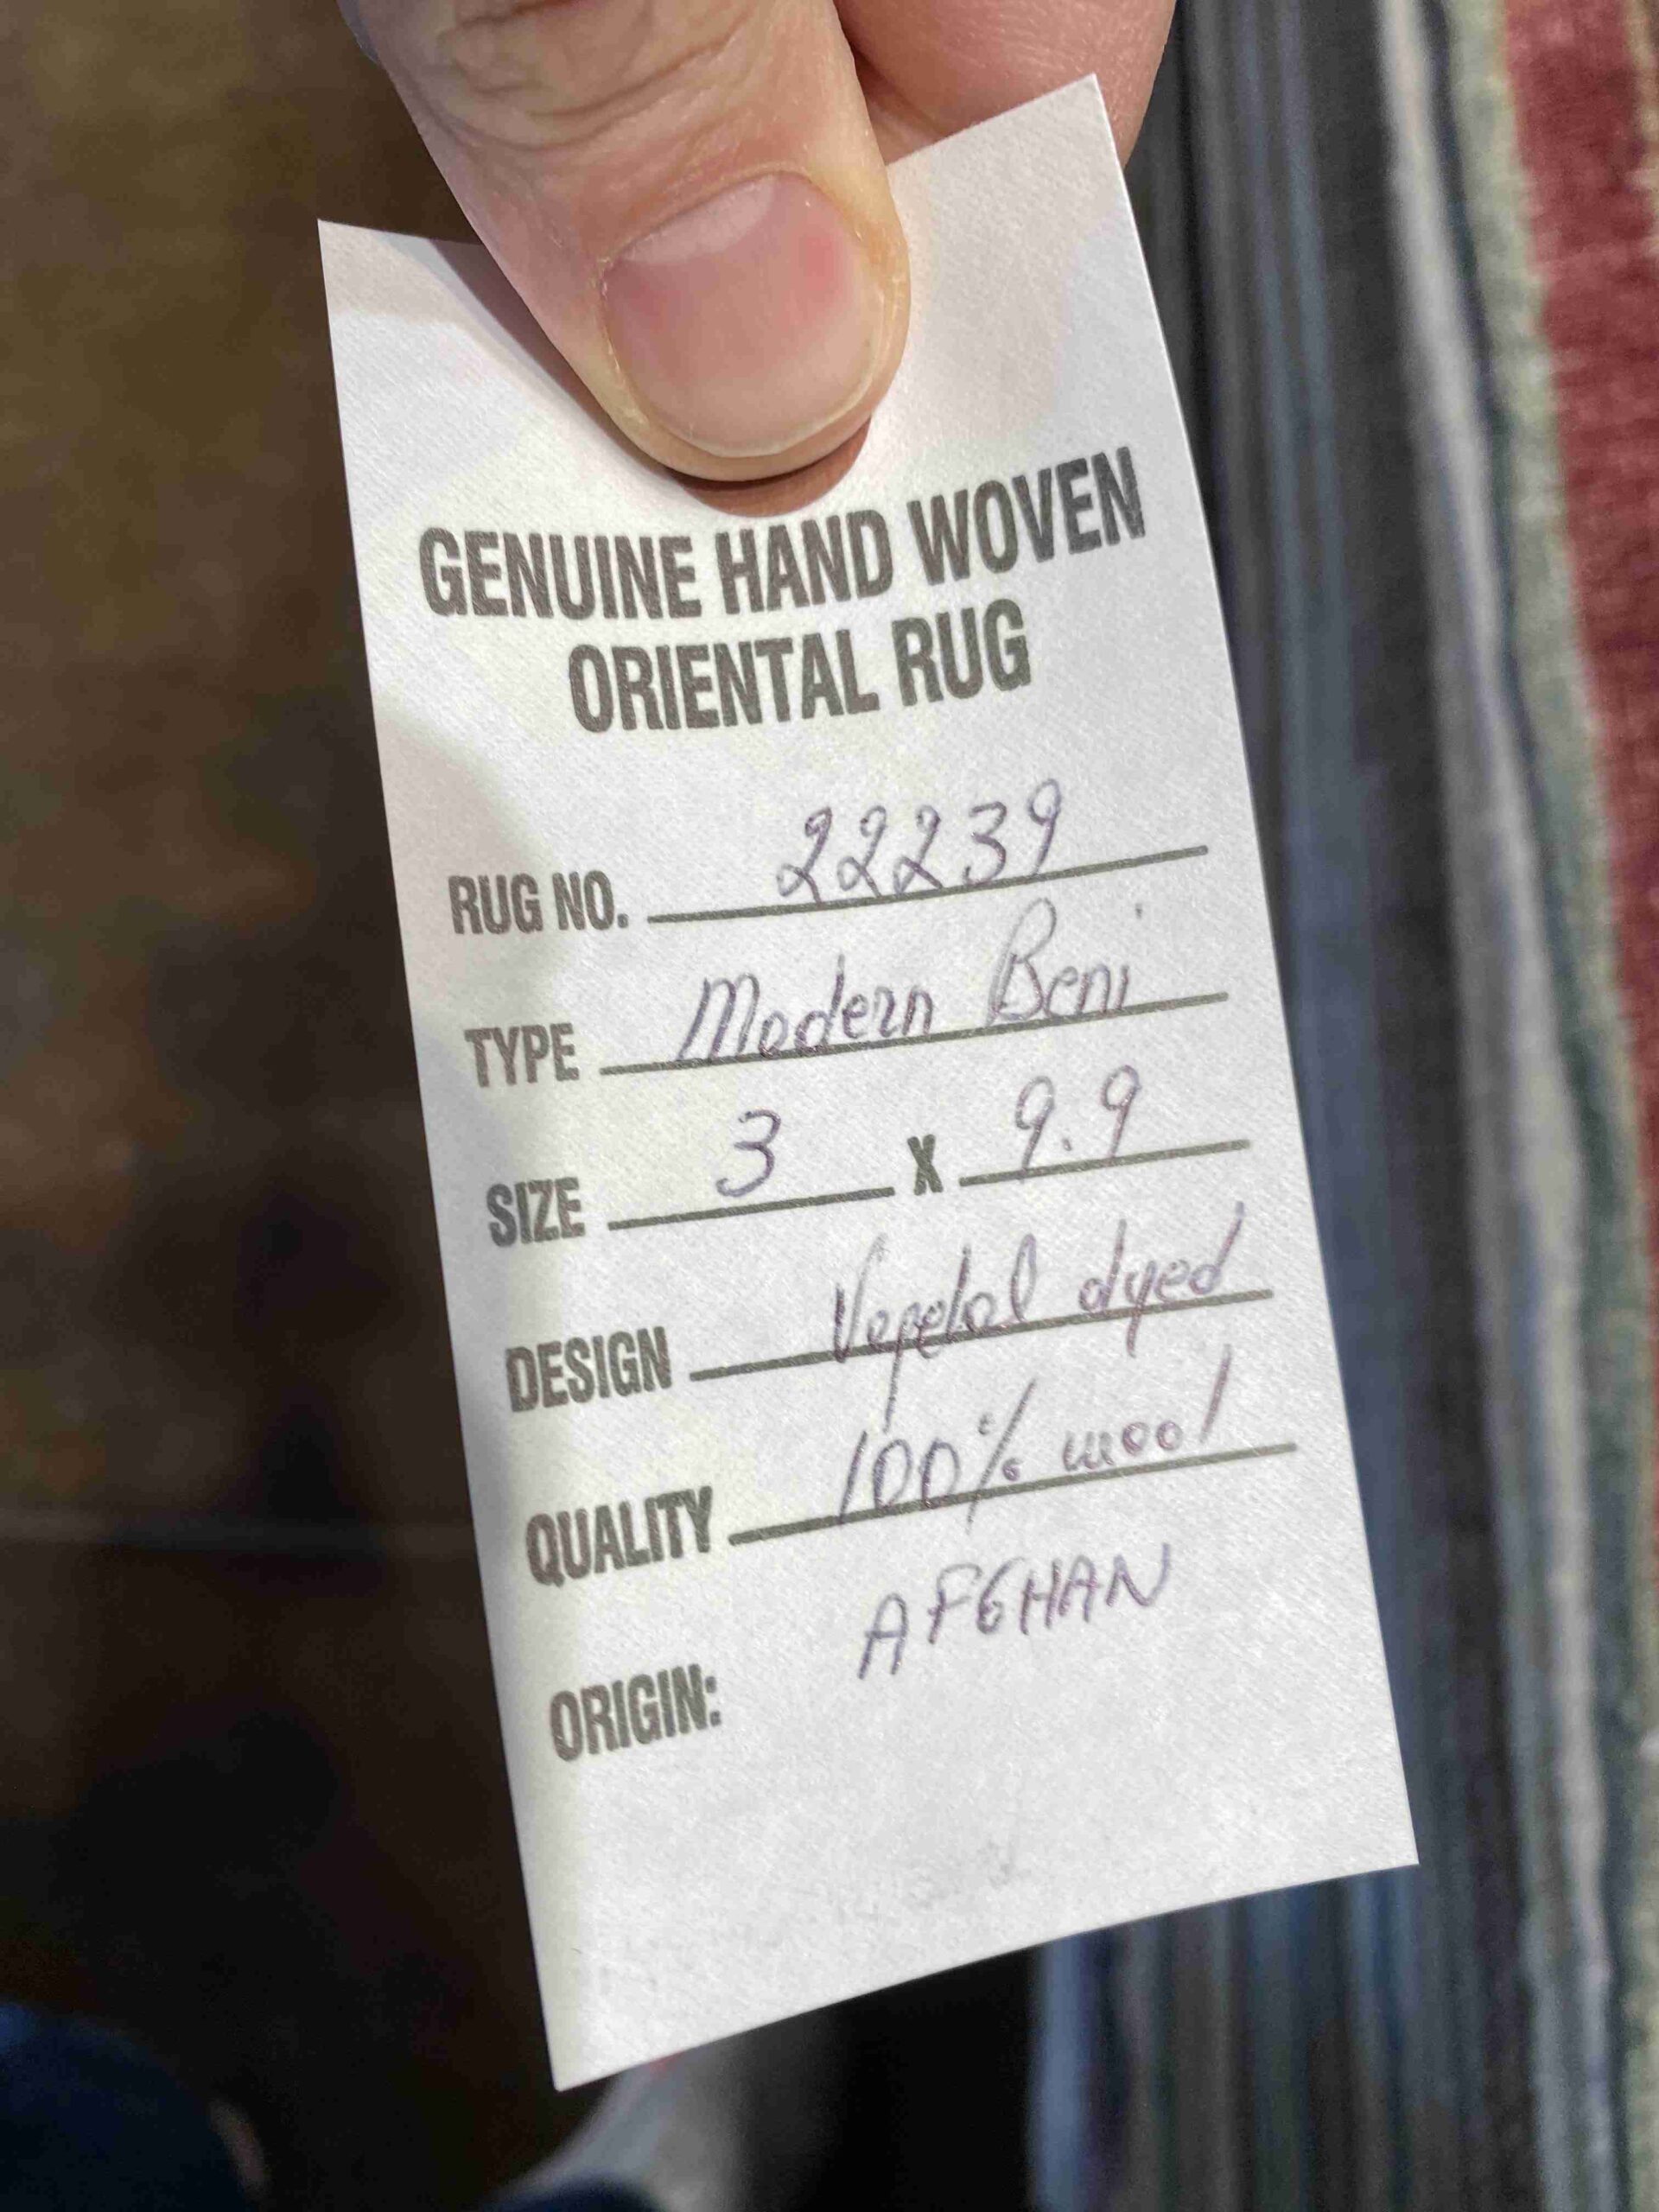 GENUINE HAND WOVEN
ORIENTAL RUG
RUG NO. 22239
TYPE Modern Beni
SIZE 3 X 9.9
DESIGN Vegetal dyed
QUALITY 100% wool
ORIGIN: AFGHAN